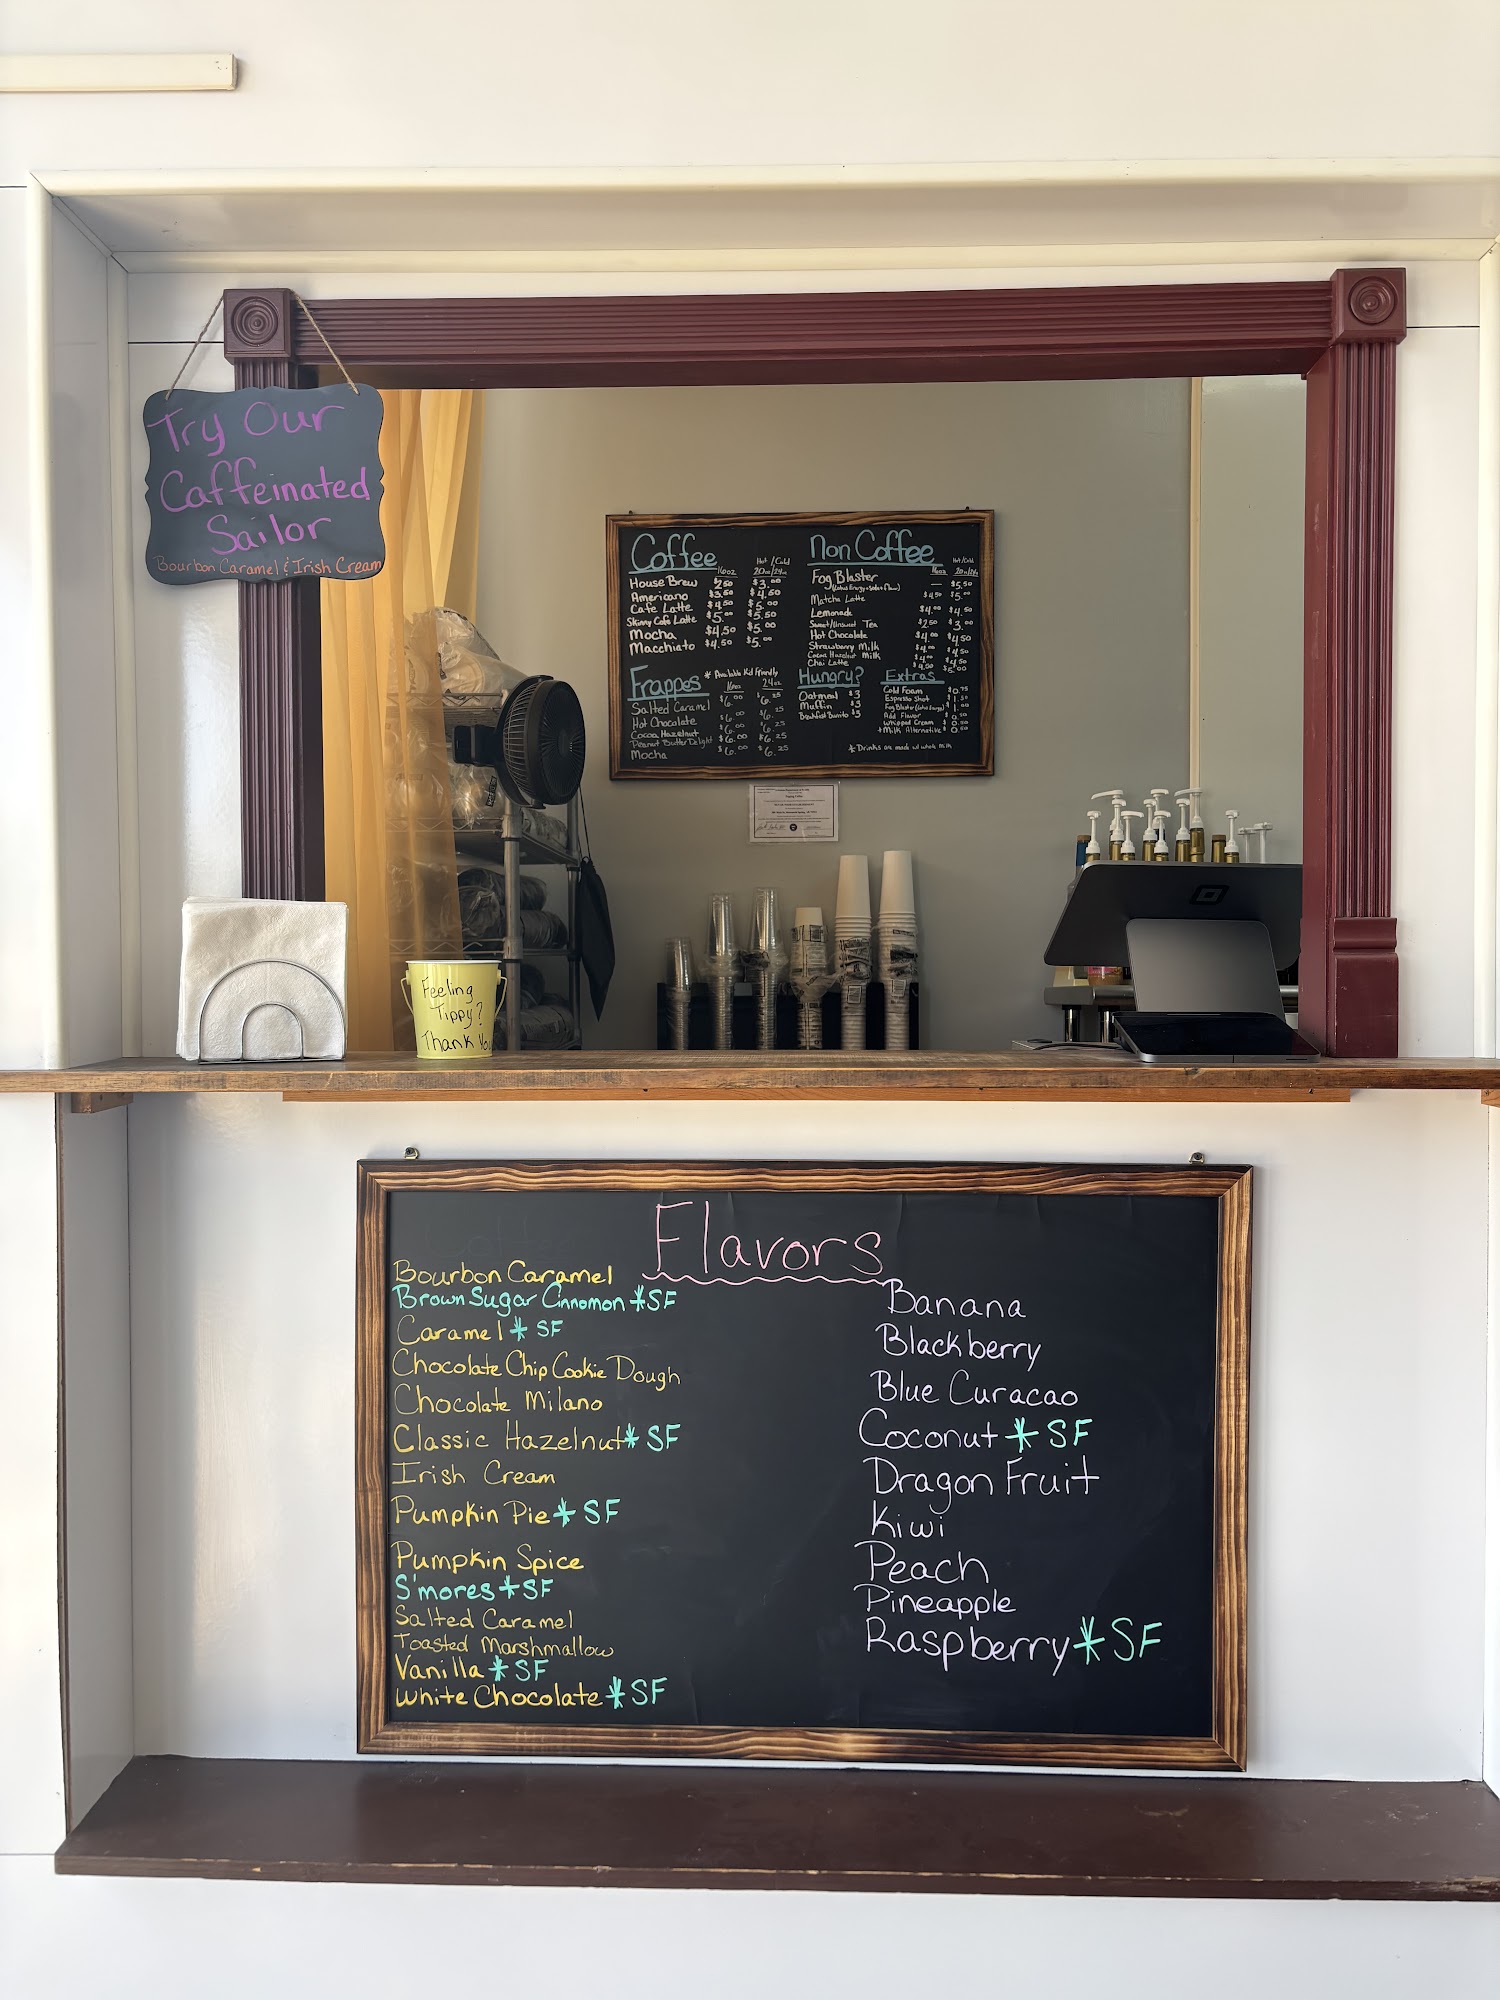 Try Our
Caffeinated
Sailor
Bourbon Caramel & Irish Cream
Coffee
16oz
Hot/Cold
20oz/24oz
House Brew $2.50 $3.00
Americano $3.50 $4.50
Cafe Latte $4.50 $5.00
Skinny Cafe Latte $5.00 $5.50
Mocha $4.50 $5.00
Macchiato $4.50 $5.00
Non Coffee
16oz
Hot/Cold
20oz/24oz
Fog Blaster — $5.50
Matcha Latte $4.50 $5.00
Lemonade $4.00 $4.50
Sweet/Unsweet Tea $2.50 $3.00
Hot Chocolate $4.00 $4.50
Strawberry Milk $4.00 $4.50
Cocoa Hazelnut Milk $4.00 $4.50
Chai Latte $4.50 $5.00
Frappes
* Available Kid Friendly
16oz 24oz
Salted Caramel $6.00 $6.25
Hot Chocolate $6.00 $6.25
Cocoa Hazelnut $6.00 $6.25
Peanut Butter Delight $6.00 $6.25
Mocha
Hungry?
Oatmeal $3
Muffin $3
Breakfast Burrito $3
Extras
Cold Foam $0.75
Espresso Shot
Fog Blaster (Lotus Energy)
Add Flavor
Whipped Cream
*Milk Alternative
* Drinks are made w/ whole milk
Feeling
Tippy?
Thank
Flavors
Bourbon Caramel
Brown Sugar Cinnomon *SF
Caramel * SF
Chocolate Chip Cookie Dough
Chocolate Milano
Classic Hazelnut * SF
Irish Cream
Pumpkin Pie * SF
Pumpkin Spice
S'mores * SF
Salted Caramel
Toasted Marshmallow
Vanilla * SF
White Chocolate * SF
Banana
Blackberry
Blue Curacao
Coconut * SF
Dragon Fruit
Kiwi
Peach
Pineapple
Raspberry * SF